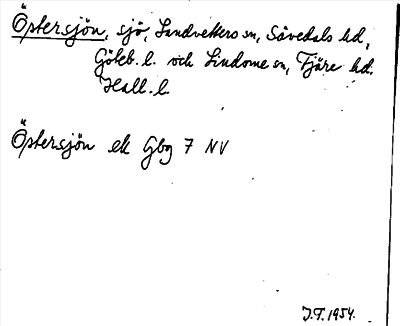 Östersjön, sjö, Landvetters sn, Sävedals hd,
Göteb. l. och Lindome sn, Fjäre hd.
Hall. l.
Östersjön ek Gbg 7 NV
J.T. 1954.